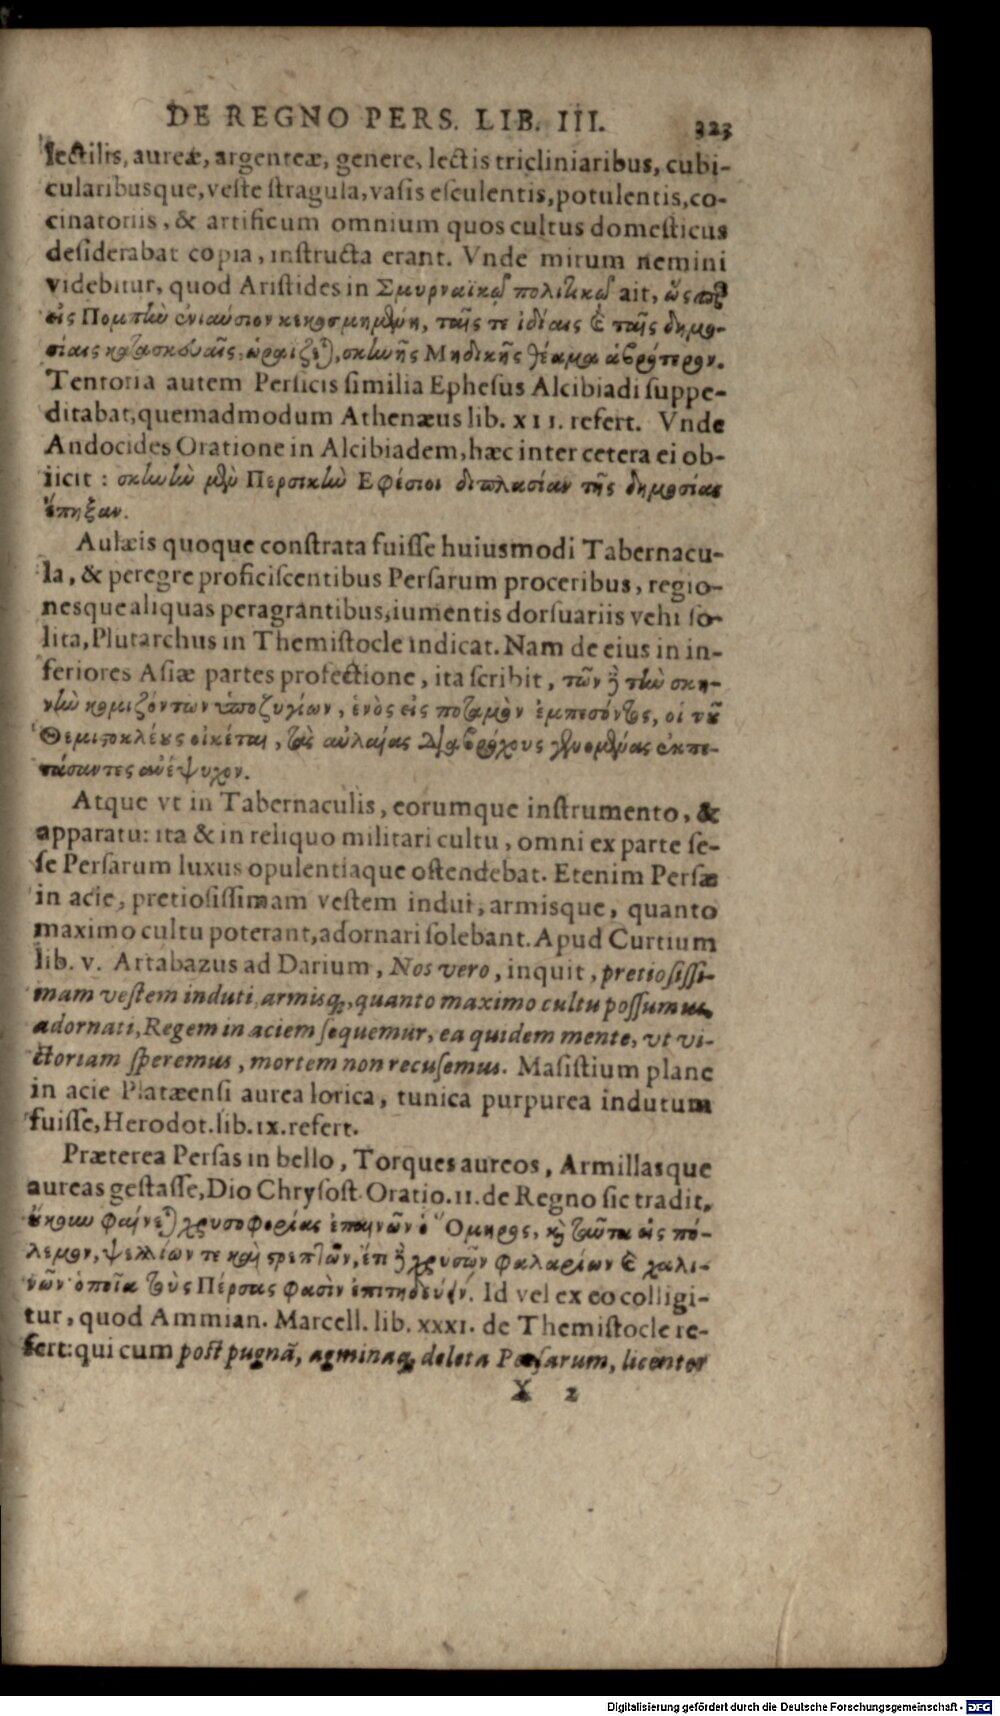 DE REGNO PERS. LIB. III. 323
lectilis, aureæ, argenteæ, genere, lectis tricliniaribus, cubi-
cularibusque, veste stragula, vasis esculentis, potulentis, co-
cinatoriis, & artificum omnium quos cultus domesticus
desiderabat copia, instructa erant. Vnde mirum nemini
videbitur, quod Aristides in Σμυρναϊκῷ πολιτικῷ ait, ὥσπερ
εἰς Πομπὴν ἐνιαύσιον κεκοσμημένη, ταῖς τε ἰδίαις & ταῖς δημο-
σίαις κατασκευαῖς, ὡραιζεται, σκηνῆς Μηδικῆς θέαμα ἁβρότερον.
Tentoria autem Persicis similia Ephesus Alcibiadi suppe-
ditabat, quemadmodum Athenæus lib. XII. refert. Vnde
Andocides Oratione in Alcibiadem, hæc inter cetera ei ob-
iicit: σκηνὴν μὲν Περσικὴν Εφέσιοι διπλασίαν τῆς δημοσίας
ἔπηξαν.
Aulæis quoque constrata fuisse huiusmodi Tabernacu-
la, & peregre proficiscentibus Persarum proceribus, regio-
nesque aliquas peragrantibus, iumentis dorsuariis vehi so-
lita, Plutarchus in Themistocle indicat. Nam de eius in in-
feriores Asiæ partes profectione, ita scribit, τῶν δὲ τὴν σκη-
νὴν κομιζόντων ὑποζυγίων, ἑνὸς εἰς ποταμὸν ἐμπεσόντος, οἱ τοῦ
Θεμιστοκλέους οἰκέται, τὰς αὐλαίας διαβρόχους γενομένας ἐκπε-
τάσαντες ανέψυχον.
Atque vt in Tabernaculis, eorumque instrumento, &
apparatu: ita & in reliquo militari cultu, omni ex parte se-
se Persarum luxus opulentiaque ostendebat. Etenim Persæ
in acie, pretiosissimam vestem indui, armisque, quanto
maximo cultu poterant, adornari solebant. Apud Curtium
lib. v. Artabazus ad Darium, Nos vero, inquit, pretiosissi-
mam vestem induti, armisq;, quanto maximo cultu possumus,
adornati, Regem in aciem sequemur, ea quidem mente, vt vi-
ctoriam speremus, mortem non recusemus. Masistium plane
in acie Platæensi aurea lorica, tunica purpurea indutum
fuisse, Herodot. lib. IX. refert.
Præterea Persas in bello, Torques aureos, Armillasque
aureas gestasse, Dio Chrysost. Oratio. II. de Regno sic tradit,
οὔκουν φαίνεται χρυσοφορίας ἐπαινῶν ὁ Ὅμηρος, καὶ ταῦτα εἰς πό-
λεμον, ψελλίων τε καὶ στρεπτῶν, ἔτι δὲ χρυσῶν φαλαρίων & χαλι-
νῶν ὁποῖα τοὺς Πέρσας φασὶν ἐπιτηδεύειν. Id vel ex eo colligi-
tur, quod Ammian. Marcell. lib. XXXI. de Themistocle re-
fert: qui cum post pugnã, agminaq; deleta Persarum, licenter
X 2
Digitalisierung gefördert durch die Deutsche Forschungsgemeinschaft - DFG